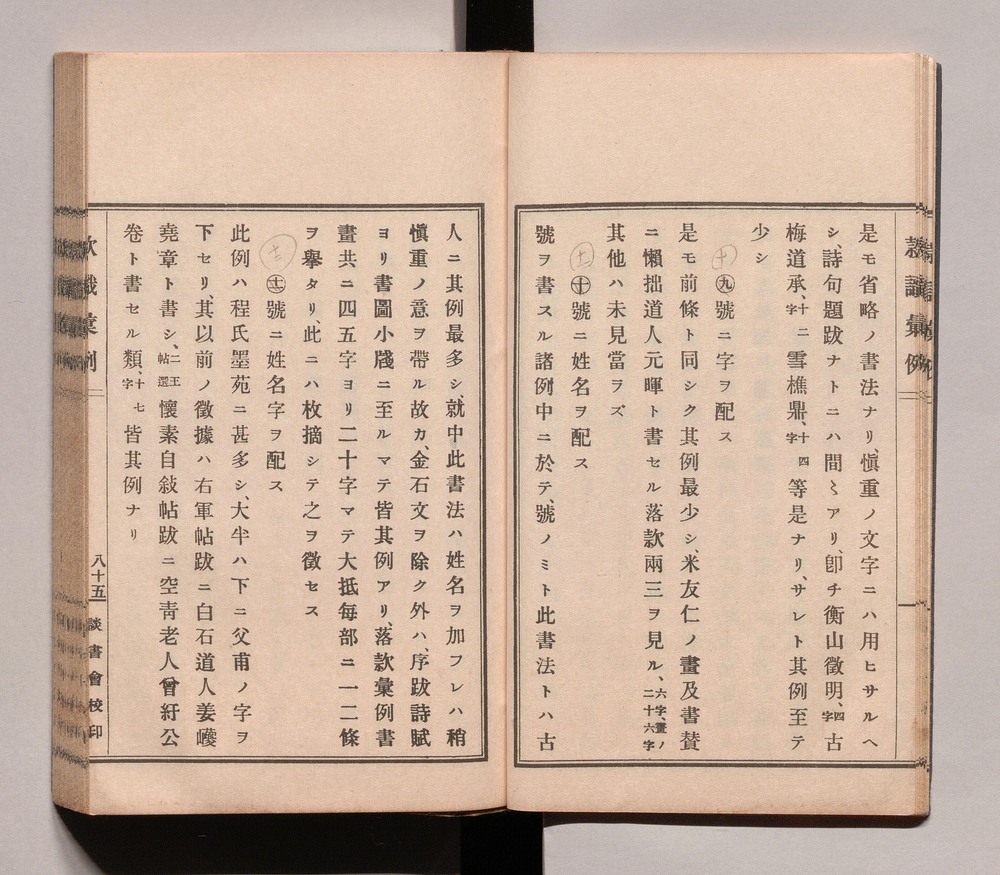 款識彙例
是モ省略ノ書法ナリ、愼重ノ文字ニハ用ヒサルヘ
シ、詩句題跋ナトニハ間〻アリ、卽チ衡山徵明、四字古
梅道承、十二字雪樵鼎、十四字等是ナリ、サレト其例至テ
少シ
十 ㊈號ニ字ヲ配ス
是モ前條ト同シク其例最少シ、米友仁ノ畫及書賛
ニ懶拙道人元暉ト書セル落款兩三ヲ見ル、六字、畫ノ二十六字
其他ハ未見當ヲズ
十一 ㊉號ニ姓名ヲ配ス
號ヲ書スル諸例中ニ於テ、號ノミト此書法トハ古
人ニ其例最多シ、就中此書法ハ姓名ヲ加フレハ稍
愼重ノ意ヲ帶ル故カ、金石文ヲ除ク外ハ、序跋詩賦
ヨリ書圖小牋ニ至ルマテ皆其例アリ、落款彙例書
畫共ニ四五字ヨリ二十字マテ大抵每部ニ一二條
ヲ擧タリ、此ニハ枚摘シテ之ヲ徵セス
十二 ㊉一號ニ姓名字ヲ配ス
此例ハ程氏墨苑ニ甚多シ、大半ハ下ニ父甫ノ字ヲ
下セリ、其以前ノ徵據ハ右軍帖跋ニ白石道人姜夔
堯章ト書シ、二王帖選懷素自敍帖跋ニ空靑老人曾紆公
卷ト書セル類、十七字皆其例ナリ
款識彙例
八十五
談書會校印